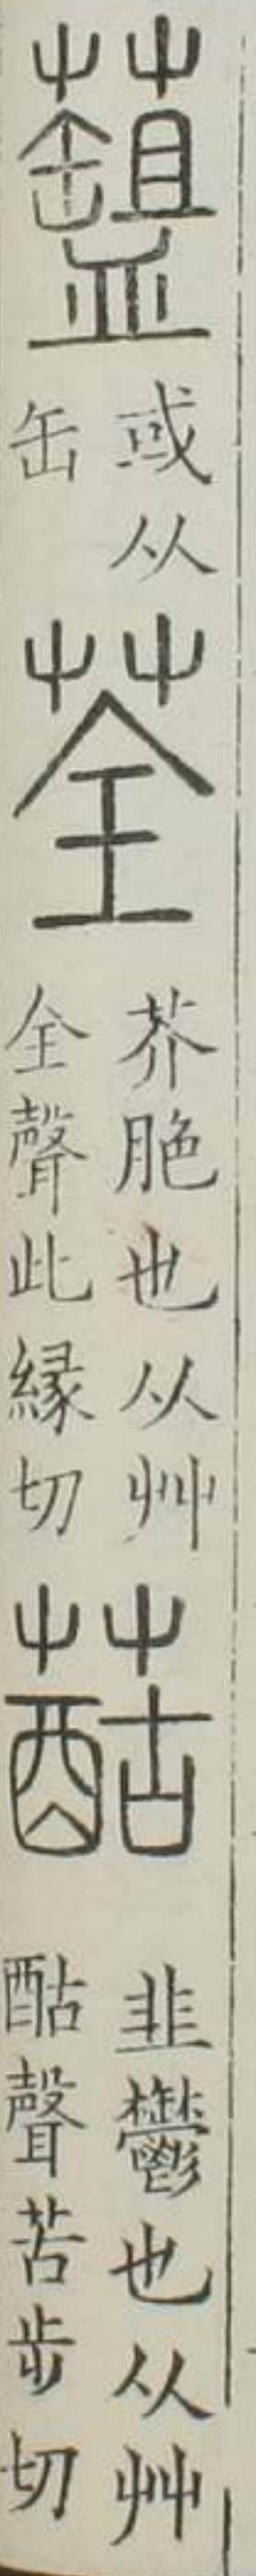 或从
缶
荃
芥脃也从艸
全聲此縁切
韭鬱也从艸
酤聲苦步切